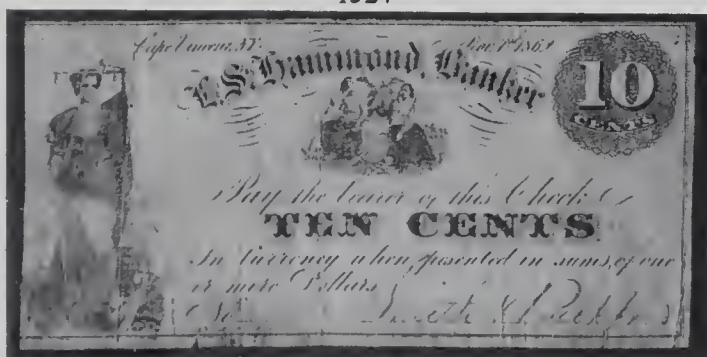 Cape Vincent, N.Y. Nov. 1st 1862
L. S. Hammond, Banker
10
CENTS
Pay the bearer of this Check
TEN CENTS
In Currency when presented in sums of one
or more Dollars
No.
Smith &